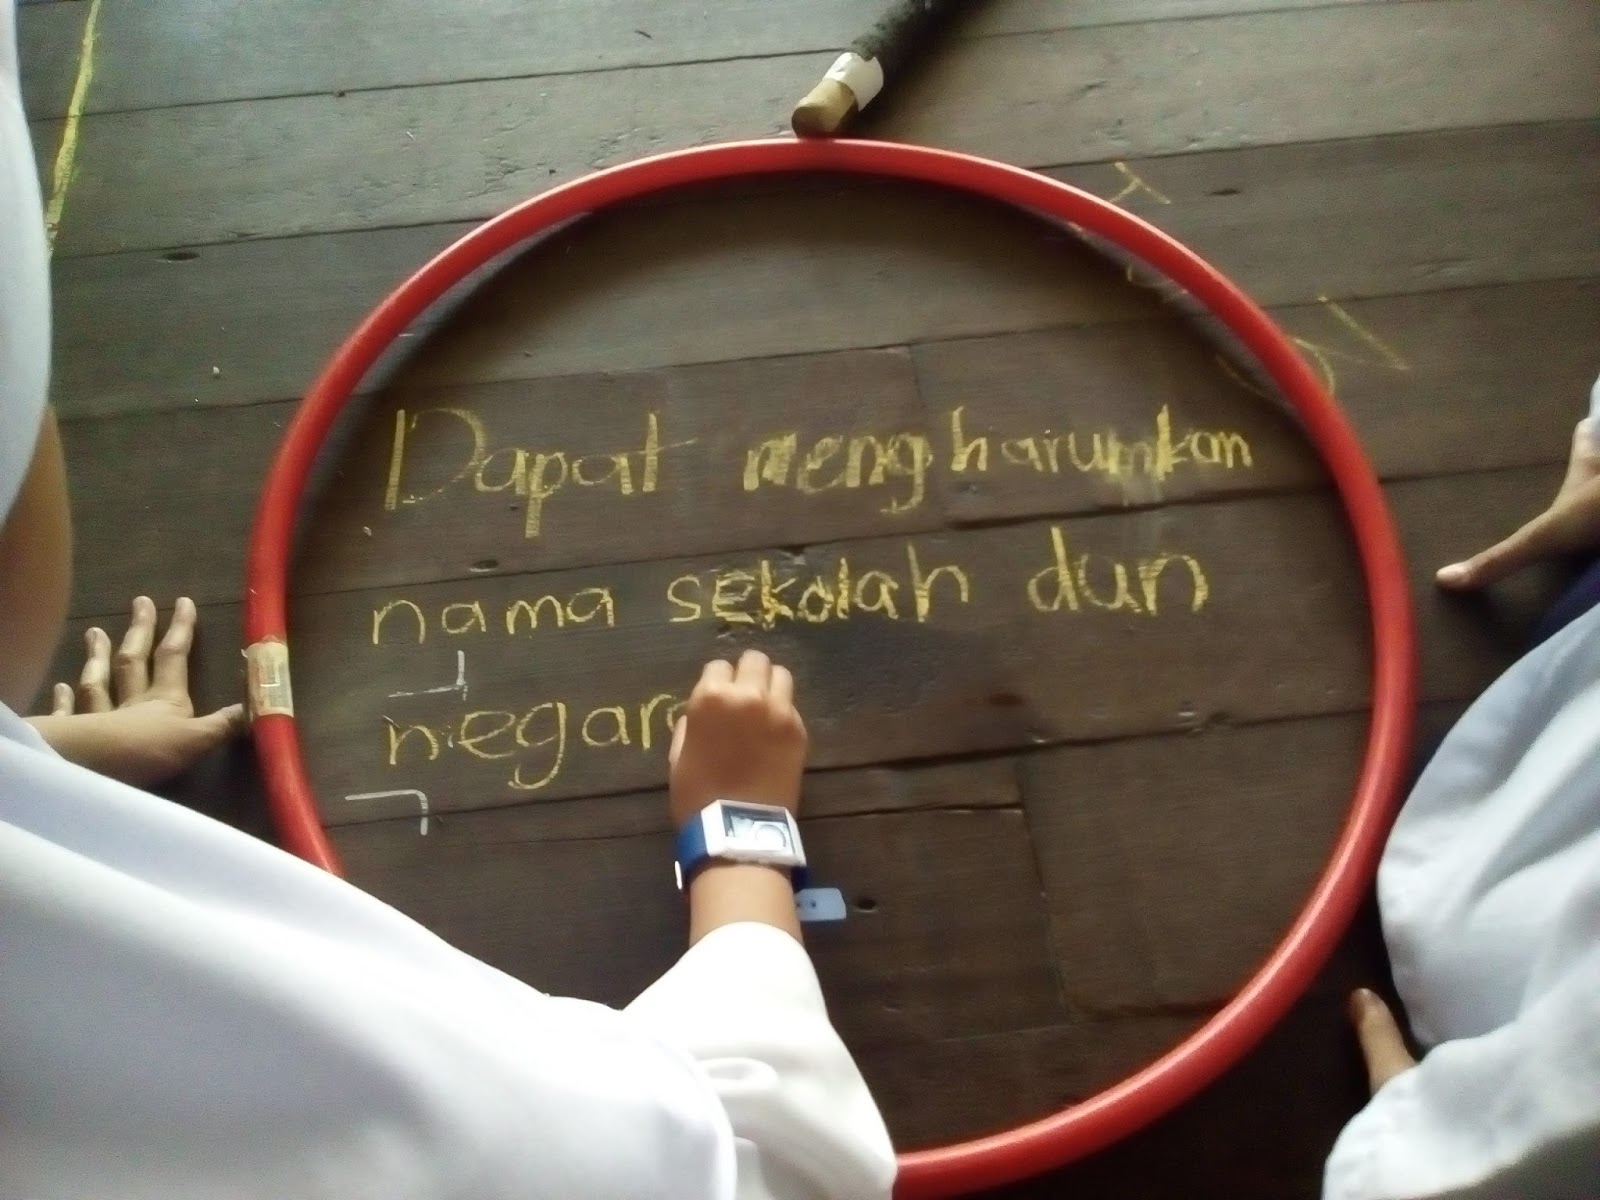 Dapat mengharumkan
nama sekolah dan
negara